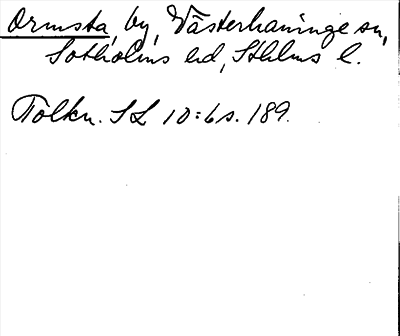 Ormsta, by, Västerhaninge sn,
Sotholms hd, Sthlms l.
Tolkn. SL 10:6 s. 189.